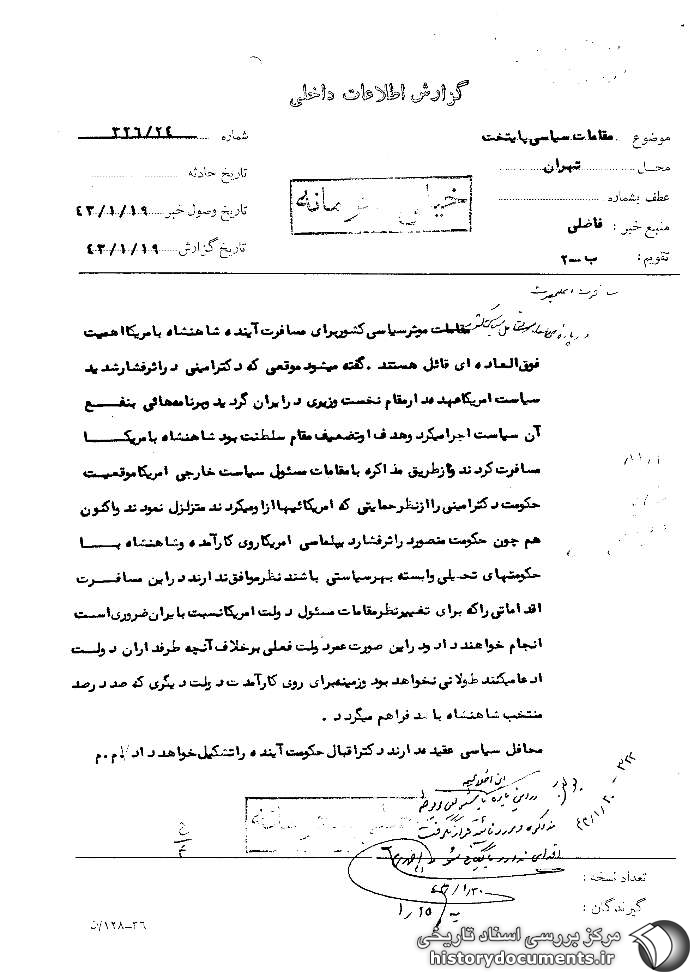 گزارش اطلاعات داخلی
موضوع مقامات سیاسی پایتخت
محل تهران
عطف بشماره
منبع خبر: فاضلی
تقویم: ب-۲
شماره ۳۲۶/۲۴
تاریخ حادثه
تاریخ وصول خبر ۴۳/۱/۱۹
تاریخ گزارش ۴۳/۱/۱۹
خیلی محرمانه
مقامات موثر سیاسی کشور برای مسافرت آینده شاهنشاه بامریکا اهمیت
فوق‌العاده‌ ای قائل هستند . گفته میشود موقعی که دکتر امینی در اثر فشار شدید
سیاست امریکا عهده دار مقام نخست وزیری در ایران گردید و برنامه‌هائی بنفع
آن سیاست اجرا میکرد و هدف او تضعیف مقام سلطنت بود شاهنشاه بامریکا
مسافرت کردند و از طریق مذاکره با مقامات مسئول سیاست خارجی امریکا موقعیت
حکومت دکتر امینی را از نظر حمایتی که امریکائیها از او میکردند متزلزل نمودند و اکنون
هم چون حکومت منصور در اثر فشار دیپلماسی امریکا روی کار آمده و شاهنشاه با
حکومتهای تحمیلی وابسته بهر سیاستی باشند نظر موافق ندارند در این مسافرت
اقداماتی را که برای تغییر نظر مقامات مسئول دولت امریکا نسبت بایران ضروری است
انجام خواهند داد و در این صورت عمر دولت فعلی برخلاف آنچه طرفداران دولت
ادعا میکنند طولانی نخواهد بود و زمینه برای روی کار آمدن دولت دیگری که صد در صد
منتخب شاهنشاه باشد فراهم میگردد .
محافل سیاسی عقیده دارند دکتر اقبال حکومت آینده را تشکیل خواهد داد / م . م
تعداد نسخه :
گیرندگان :
۴۳/۱/۳۰
۱۲۸-۳۶/ن
مرکز بررسی اسناد تاریخی
historydocuments.ir